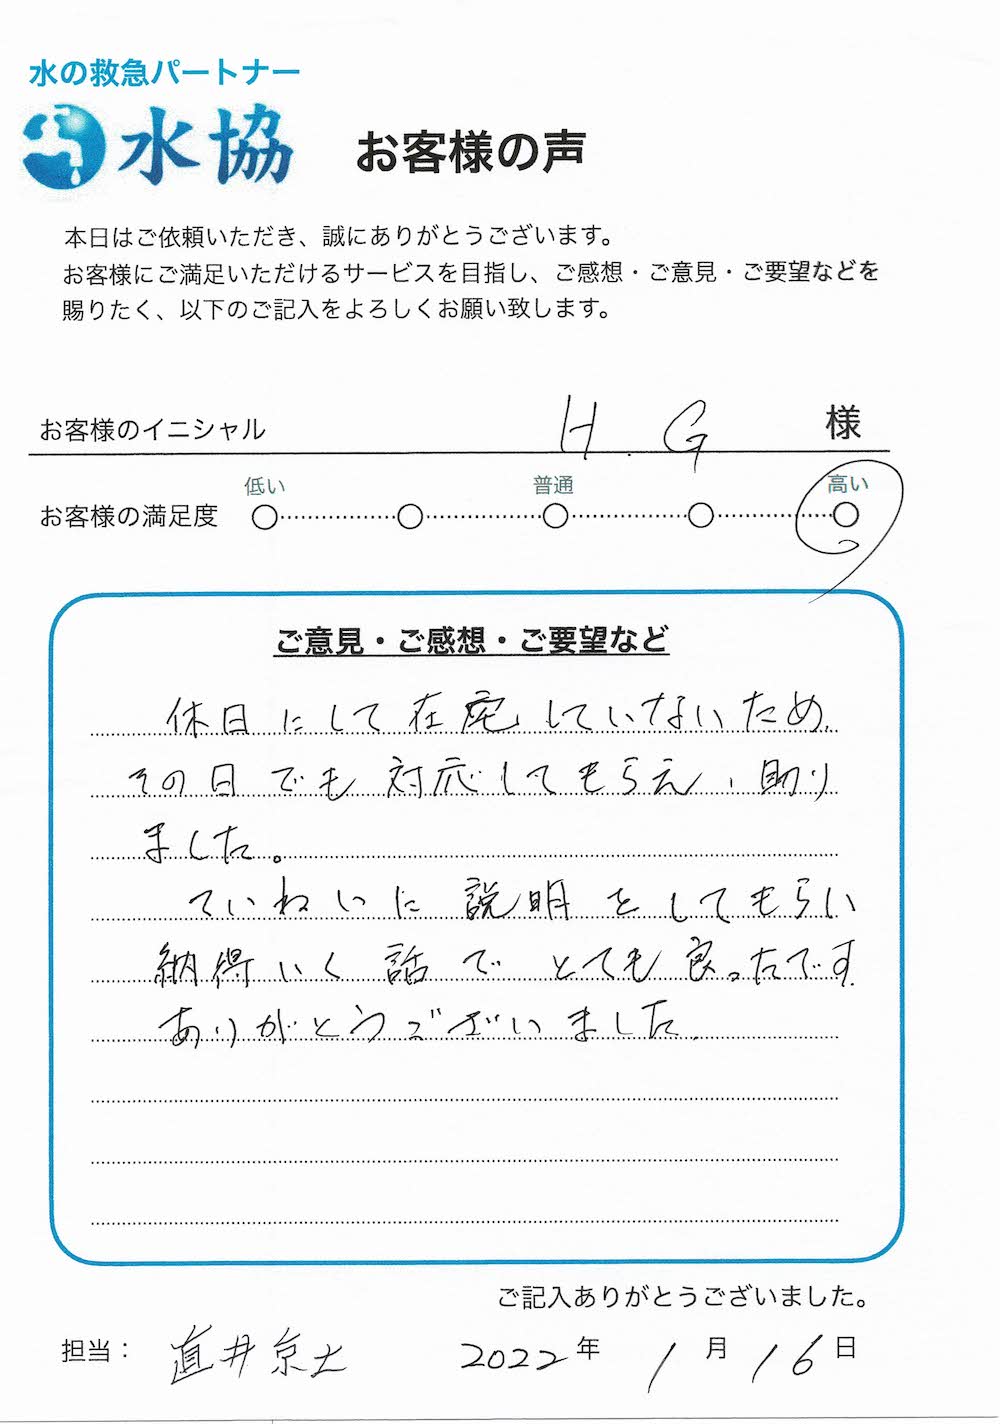 水の救急パートナー
水協
お客様の声
本日はご依頼いただき、誠にありがとうございます。
お客様にご満足いただけるサービスを目指し、ご感想・ご意見・ご要望などを
賜りたく、以下のご記入をよろしくお願い致します。
お客様のイニシャル H.G 様
低い 普通 高い
お客様の満足度
ご意見・ご感想・ご要望など
休日にして在宅していないため、
その日でも対応してもらえ、助り
ました。
ていねいに説明をしてもらい
納得いく話でとても良ったです
ありがとうございました。
ご記入ありがとうございました。
担当： 直井京士 2022年 1月 16日